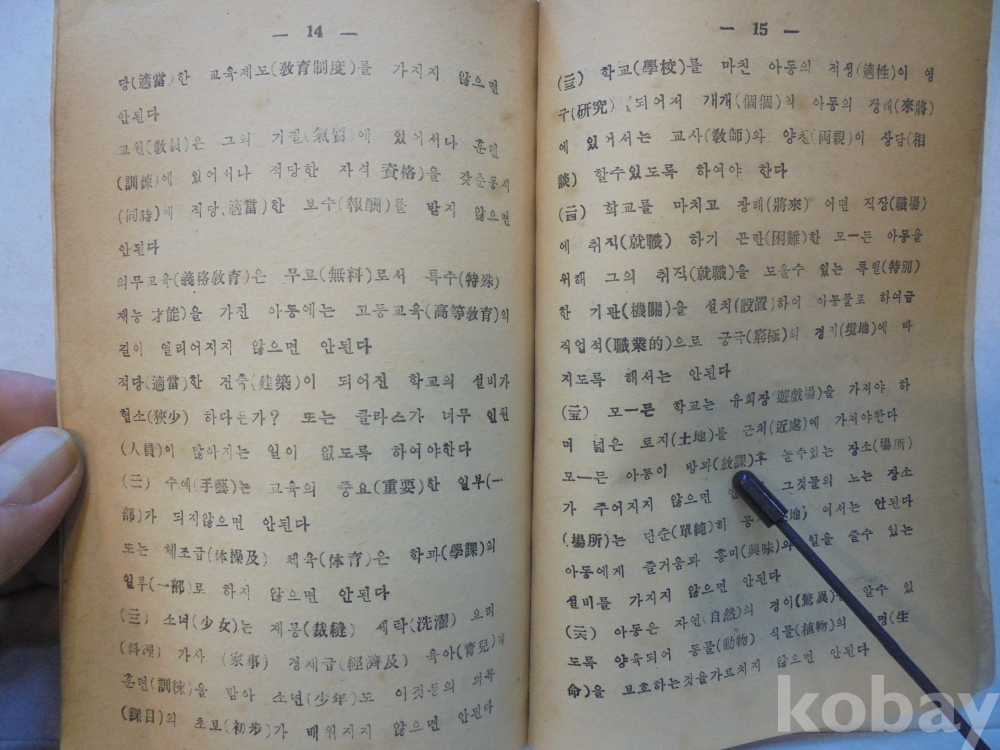 — 14 —
당(適當)한 교육제도(敎育制度)를 가지지 않으면
안된다
교원(敎員)은 그의 기질(氣質)에 있어서나 훈련
(訓練)에 있어서나 적당한 자격 資格)을 갖춘동시
(同時)에 적당(適當)한 보수(報酬)를 받지 않으면
안된다
의무교육(義務敎育)은 무료(無料)로서 특수(特殊)
재능 才能)을 가진 아동에는 고등교육(高等敎育)의
길이 열리어지지 않으면 안된다
적당(適當)한 건축(建築)이 되어진 학교의 설비가
협소(狹少) 하다든가? 또는 클라스가 너무 인원
(人員)이 많아지는 일이 없도록 하여야한다
(二) 수예(手藝)는 교육의 중요(重要)한 일부(一
部)가 되지않으면 안된다
또는 체조급(体操及) 체육(体育)은 학과(學課)의
일부(一部)로 하지 않으면 안된다
(三) 소녀(少女)는 재봉(裁縫) 세탁(洗濯) 요리
(料理) 가사 (家事) 경제급(經濟及) 육아(育兒)의
훈련(訓練)을 받아 소년(少年)도 이것등의 의목
(課目)의 초보(初步)가 배워지지 않으면 안된다
— 15 —
(三) 학교(學校)를 마친 아동의 적성(適性)이 영
구(硏究) 되어저 개개(個個)의 아동의 장래(來將)
에 있어서는 교사(敎師)와 양친(両親)이 상담(相
談) 할수있도록 하여야 한다
(四) 학교를 마치고 장래(將來) 어떤 직장(職場)
에 취직(就職) 하기 곤란(困難)한 모—든 아동을
위해 그의 취직(就職)을 도을수 있는 특별(特別)
한 기관(機關)을 설치(設置)하여 아동들로 하여금
직업적(職業的)으로 궁극(窮極)의 경지(境地)에 빠
지도록 해서는 안된다
(五) 모—든 학교는 유희장(遊戲場)을 가져야 하
며 넓은 토지(土地)를 근처(近處)에 가저야한다
모—든 아동이 방과(放課)후 놀수있는 장소(場所)
가 주어지지 않으면 그것들의 노는 장소
(場所)는 단순(單純)히 어서는 안된다
아동에게 즐거움과 흥미(興味)의 일을 줄수 있는
설비를 가지지 않으면 안된다
(六) 아동은 자연(自然)의 경이(驚異) 알수 있
도록 양육되어 동물(動物) 식물(植物)의 명(生
命)을 보호하는것을가르치지 않으면 안된다
kobay